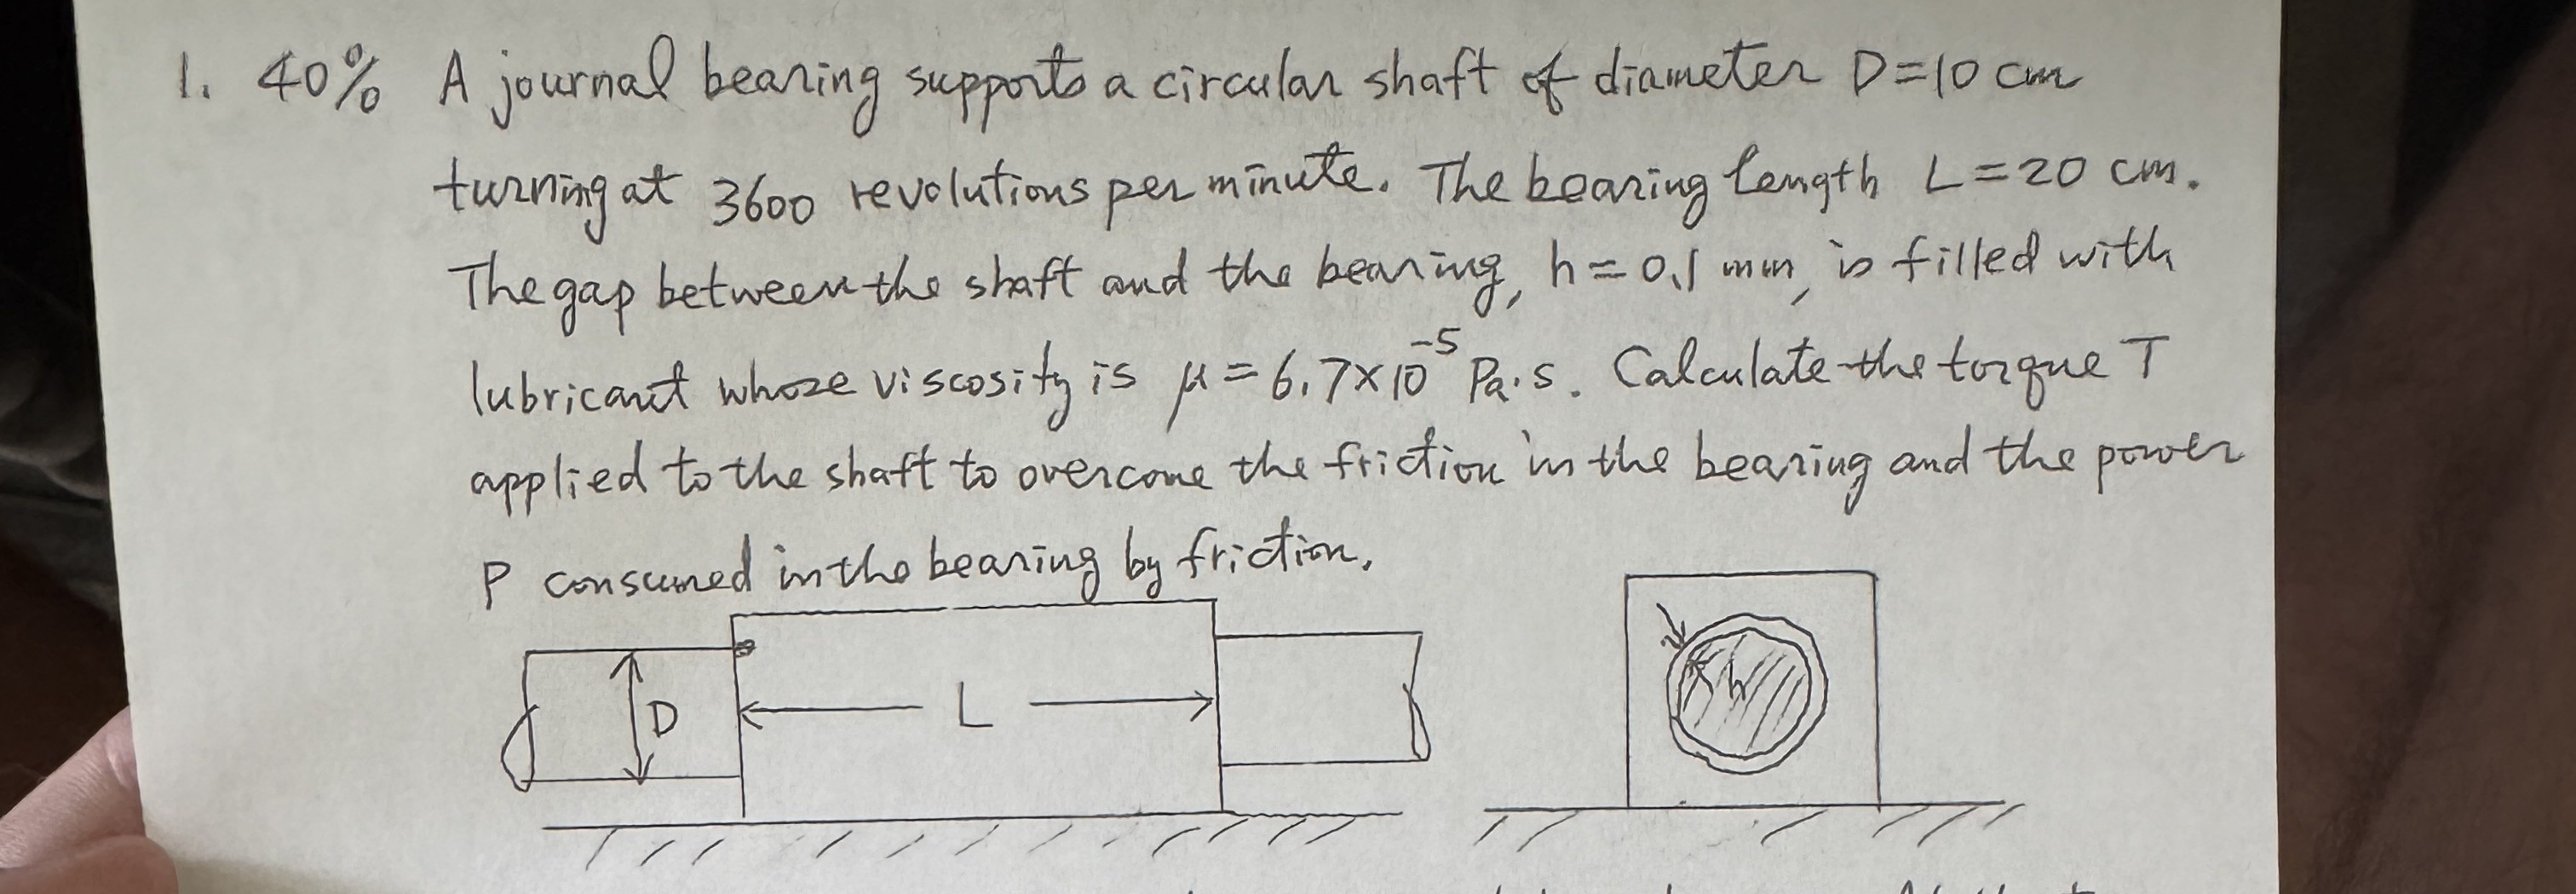 1. 40% A journal bearing supports a circular shaft of diameter D=10 cm
turning at 3600 revolutions per minute. The bearing length L=20 cm.
The gap between the shaft and the bearing, h=0.1 mm, is filled with
lubricant whose viscosity is μ=6.7×10⁻⁵ Pa·s. Calculate the torque T
applied to the shaft to overcome the friction in the bearing and the power
P consumed in the bearing by friction.
D
L
h